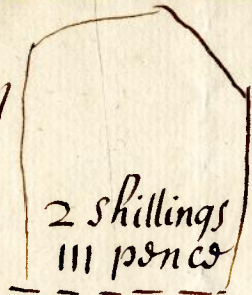 2 shillings
III pence